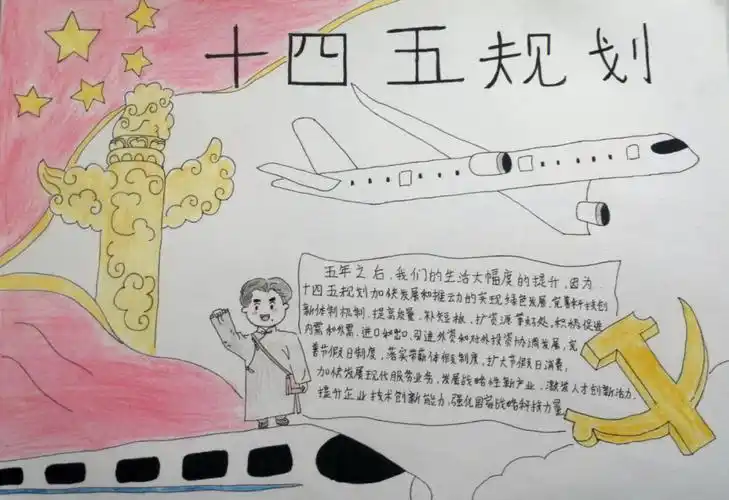 十四五规划
五年之后,我们的生活大幅度的提升,因为
十四五规划加快发展和推动的实现绿色发展,完善科技创
新体制机制,提高质量,补短板,扩资源等好处,积极促进
内需和外需,进口和出口,引进外资和对外投资协调发展,完
善节假日制度,落实带薪休假制度,扩大节假日消费,
加快发展现代服务业务,发展战略性新产业,激发人才创新活力.
提升企业技术创新能力,强化国家战略科技力量